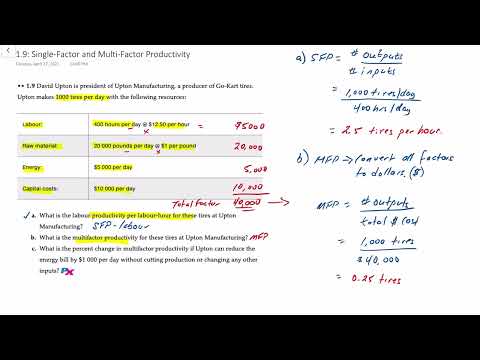 1.9: Single-Factor and Multi-Factor Productivity
•• 1.9 David Upton is president of Upton Manufacturing, a producer of Go-Kart tires.
Upton makes 1000 tires per day with the following resources:
Labour: 400 hours per day @ $12.50 per hour = $5000
x
Raw material: 20 000 pounds per day @ $1 per pound = 20,000
x
Energy: $5 000 per day 5,000
Capital costs: $10 000 per day 10,000
Total factor 40,000
✓ a. What is the labour productivity per labour-hour for these tires at Upton
Manufacturing? SFP - labour
b. What is the multifactor productivity for these tires at Upton Manufacturing? MFP
c. What is the percent change in multifactor productivity if Upton can reduce the
energy bill by $1 000 per day without cutting production or changing any other
inputs?
a) SFP = # outputs
# inputs
= 1,000 tires/day
400 hrs/day
= 2.5 tires per hour.
b) MFP → convert all factors
to dollars ($)
MFP = # outputs
total $ cost
= 1,000 tires
$40,000
= 0.25 tires